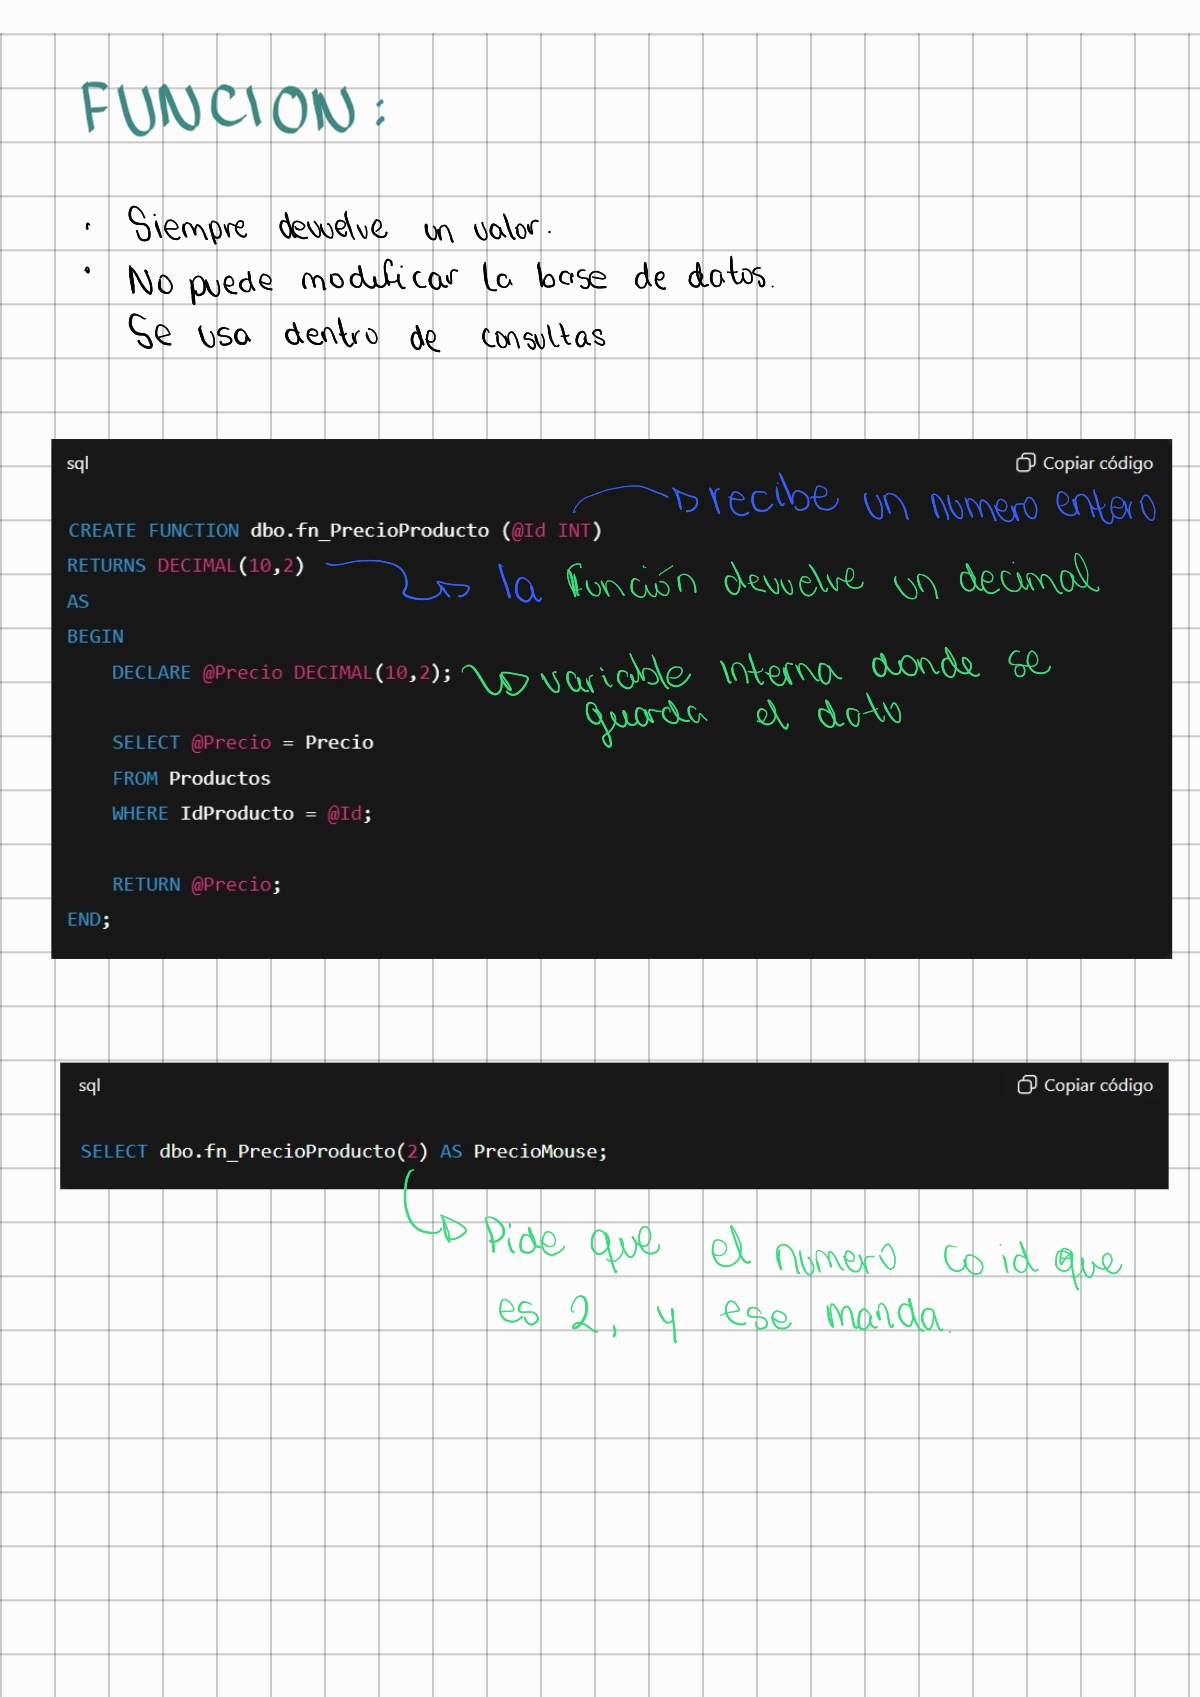 FUNCION:
· Siempre devuelve un valor.
· No puede modificar la base de datos.
Se usa dentro de consultas
sql
Copiar código
recibe un numero entero
CREATE FUNCTION dbo.fn_PrecioProducto (@Id INT)
RETURNS DECIMAL(10,2)
la Función devuelve un decimal
AS
BEGIN
DECLARE @Precio DECIMAL(10,2);
variable interna donde se
guarda el dato
SELECT @Precio = Precio
FROM Productos
WHERE IdProducto = @Id;
RETURN @Precio;
END;
sql
Copiar código
SELECT dbo.fn_PrecioProducto(2) AS PrecioMouse;
Pide que el numero co id que
es 2, y ese manda.